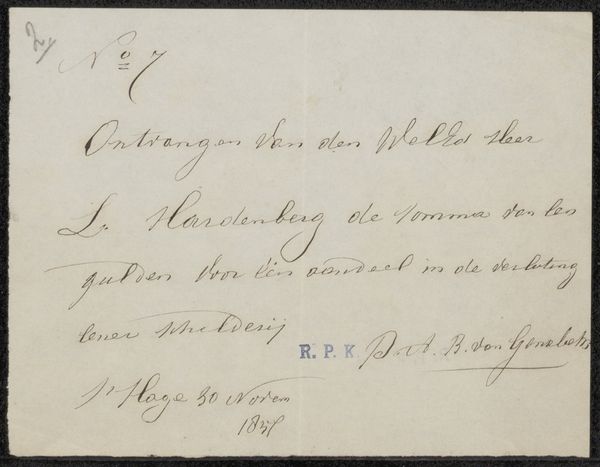 2/
No 7
Ontvangen van den WelEd Heer
L. Hardenberg de somma van tien
gulden voor één aandeel in de verloting
eener schilderij
R. P. K.
B. van
s'Hage 30 Novem